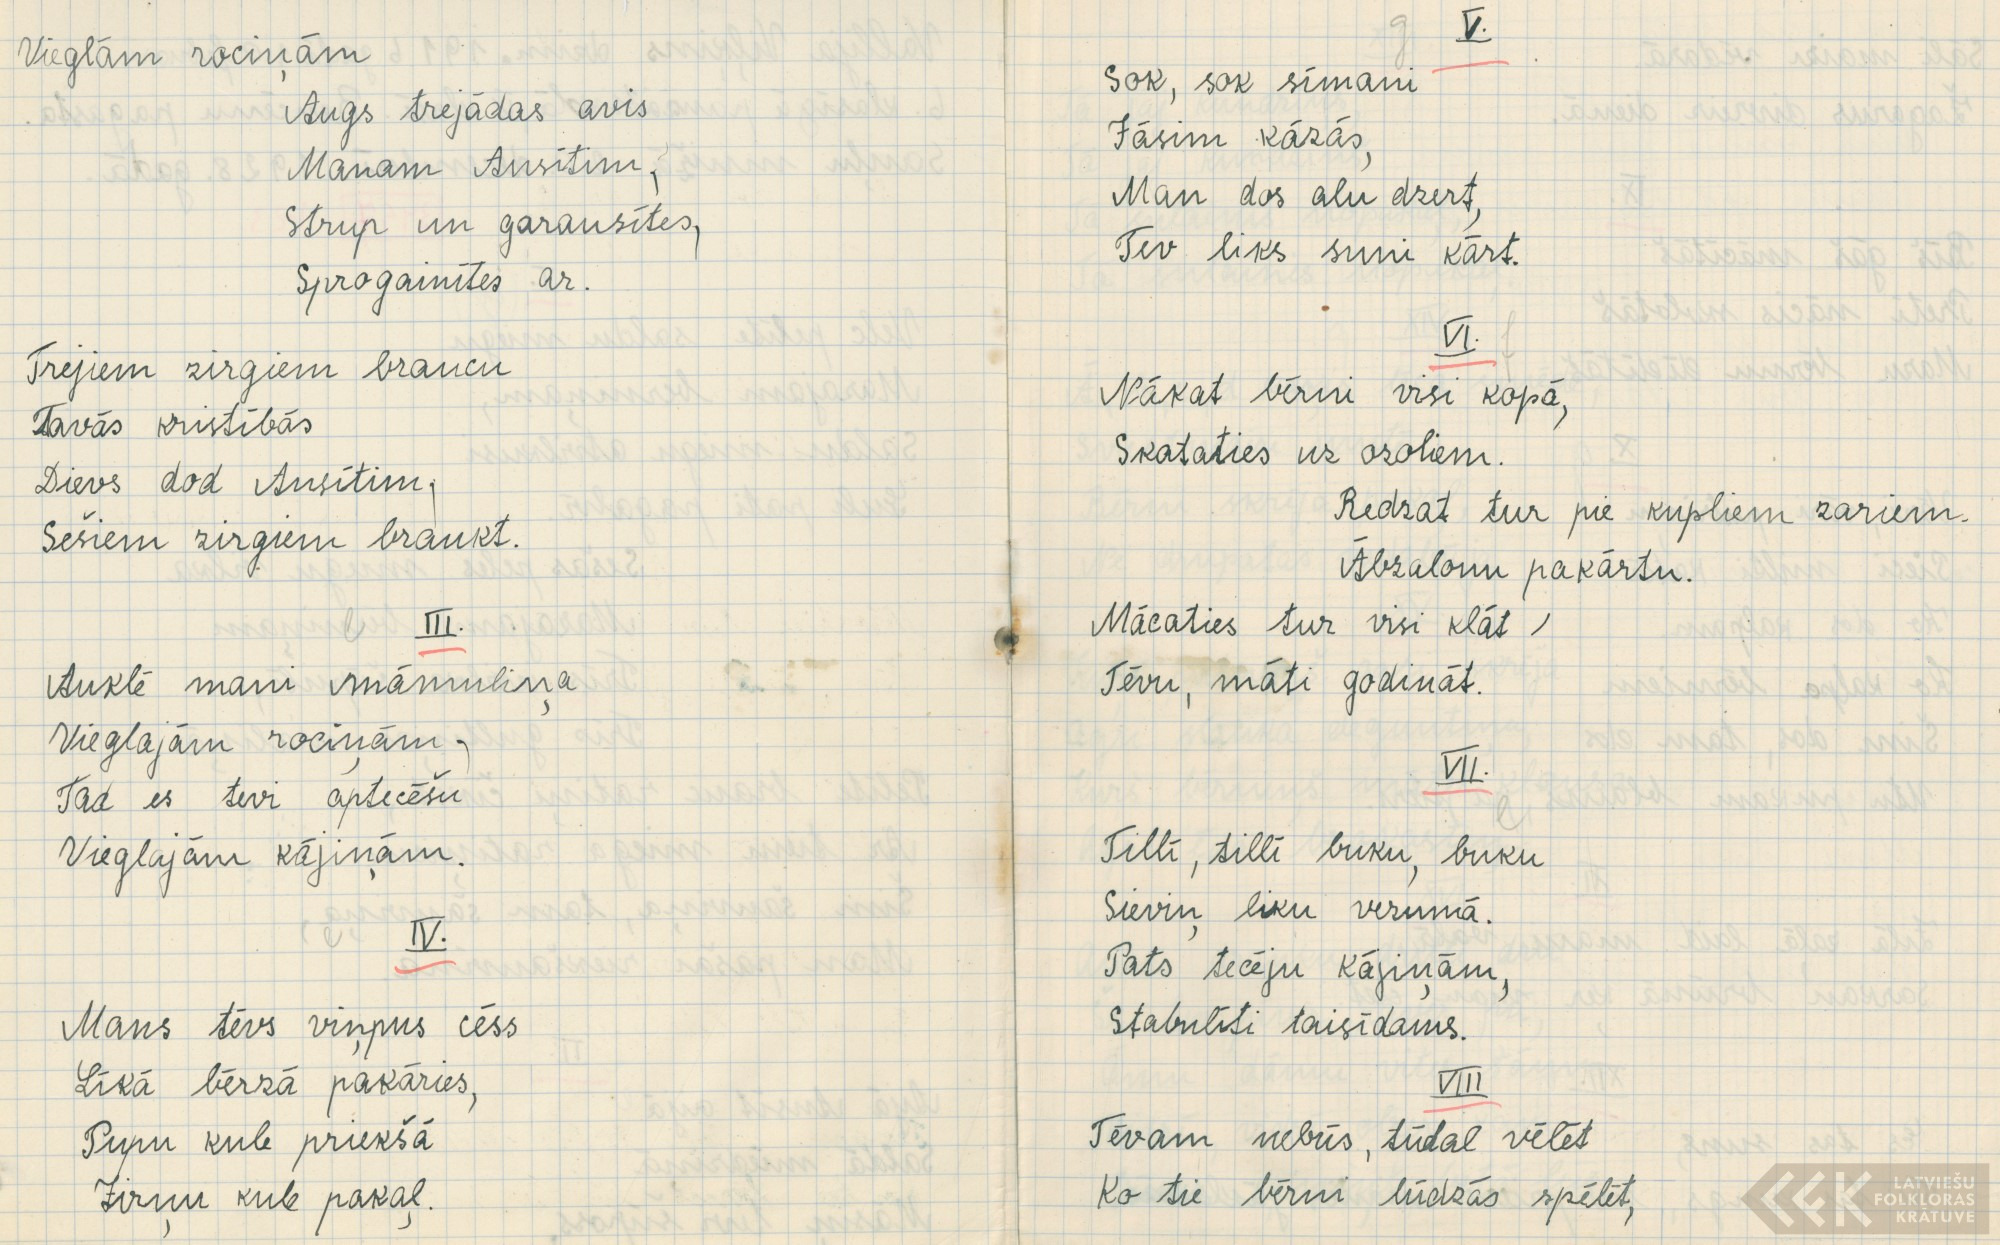 Vieglām rociņām
Augs trejādas avis
Manam Ansītim,
Strup un garausītes,
Sprogainītes ar.
Trejiem zirgiem braucu
Tavās kristībās
Dievs dod Ansītim,
Sešiem zirgiem braukt.
III.
Auklē mani māmuliņa
Vieglajām rociņām,
Tad es tevi aptecēšu
Vieglajām kājiņām.
IV.
Mans tēvs viņpus cēss
Līkā bērzā pakāries,
Pupu kule priekšā
Zirņu kule pakaļ.
V.
Sok, sok sīmani
Jāsim kāzās,
Man dos alu dzert,
Tev liks suni kārt.
VI.
Nākat bērni visi kopā,
Skataties uz ozoliem.
Redzat tur pie kupliem zariem.
Ābzalonu pakārtu.
Mācaties tur visi klāt,
Tēvu, māti godināt.
VII.
Tillī, tillī buku, buku
Sieviņ liku vezumā.
Pats tecēju kājiņām,
Stabulīti taisīdams.
VIII
Tēvam nebūs, tūdal vēlēt
Ko tie bērni lūdzās spēlēt,
LATVIEŠU
FOLKLORAS
KRĀTUVE